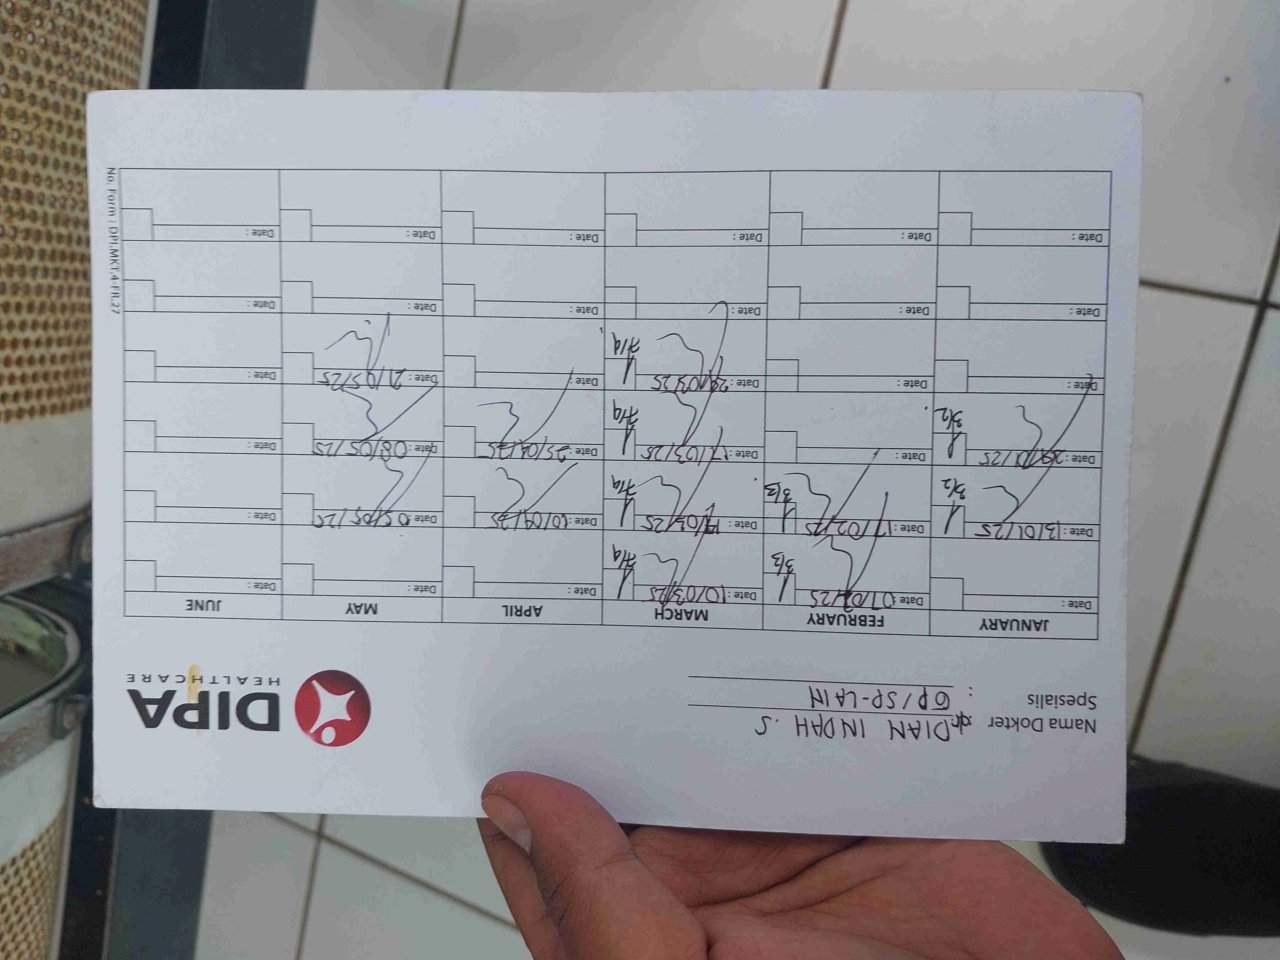 Nama Dokter dr DIAN INDAH . S
Spesialis : GP/SP-LAIN
DIPA
HEALTHCARE
JANUARY FEBRUARY MARCH APRIL MAY JUNE
Date : Date : 07/02/25 3/3 Date : 10/03/25 7/4 Date : Date : Date :
Date : 13/01/25 3/2 Date : 17/02/25 3/3 Date : 14/03/25 7/4 Date : 10/04/25 Date : 05/05/25 Date :
Date : 29/01/25 3/2 Date : Date : 17/03/25 7/4 Date : 25/04/25 Date : 08/05/25 Date :
Date : Date : Date : /03/25 7/4 Date : Date : 21/05/25 Date :
Date : Date : Date : Date : Date : Date :
Date : Date : Date : Date : Date : Date :
No. Form : DPI.MKT.4-FR.27